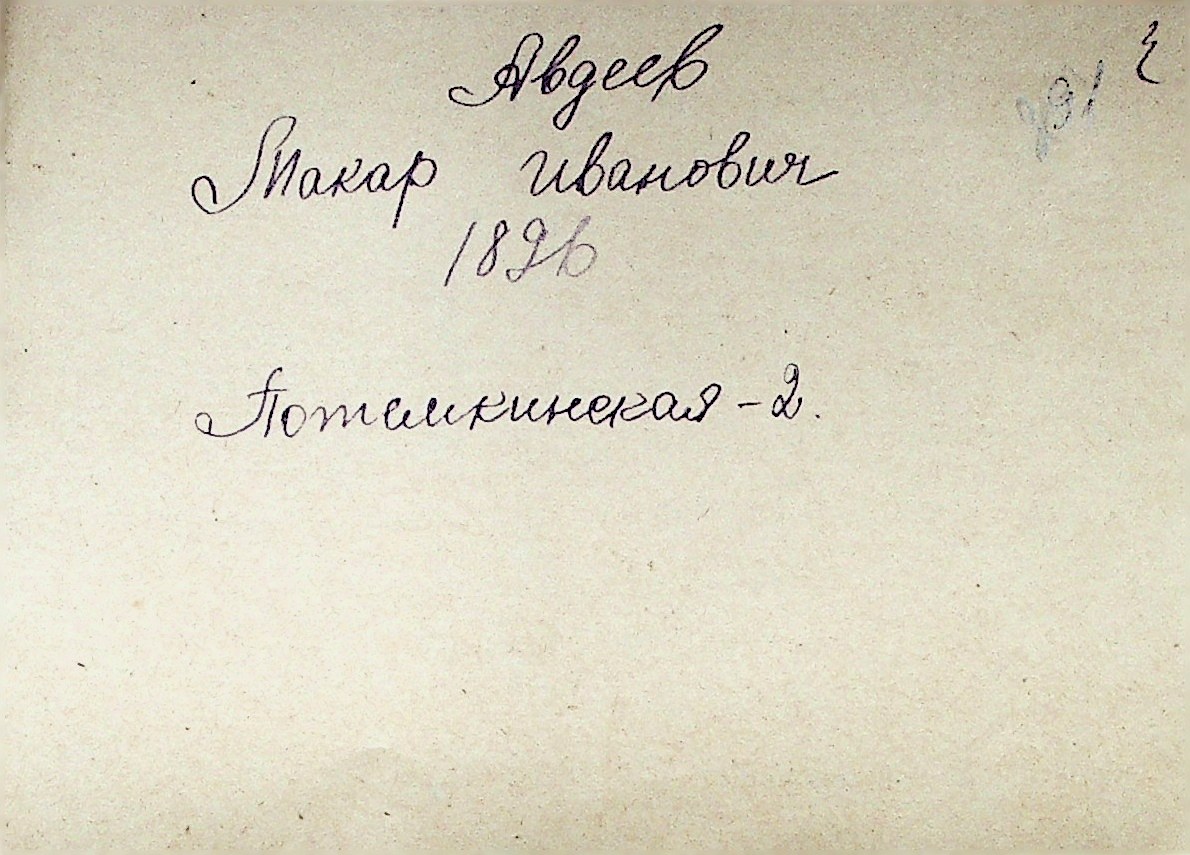 Авдеев
Макар Иванович
1896
Потемкинская - 2.